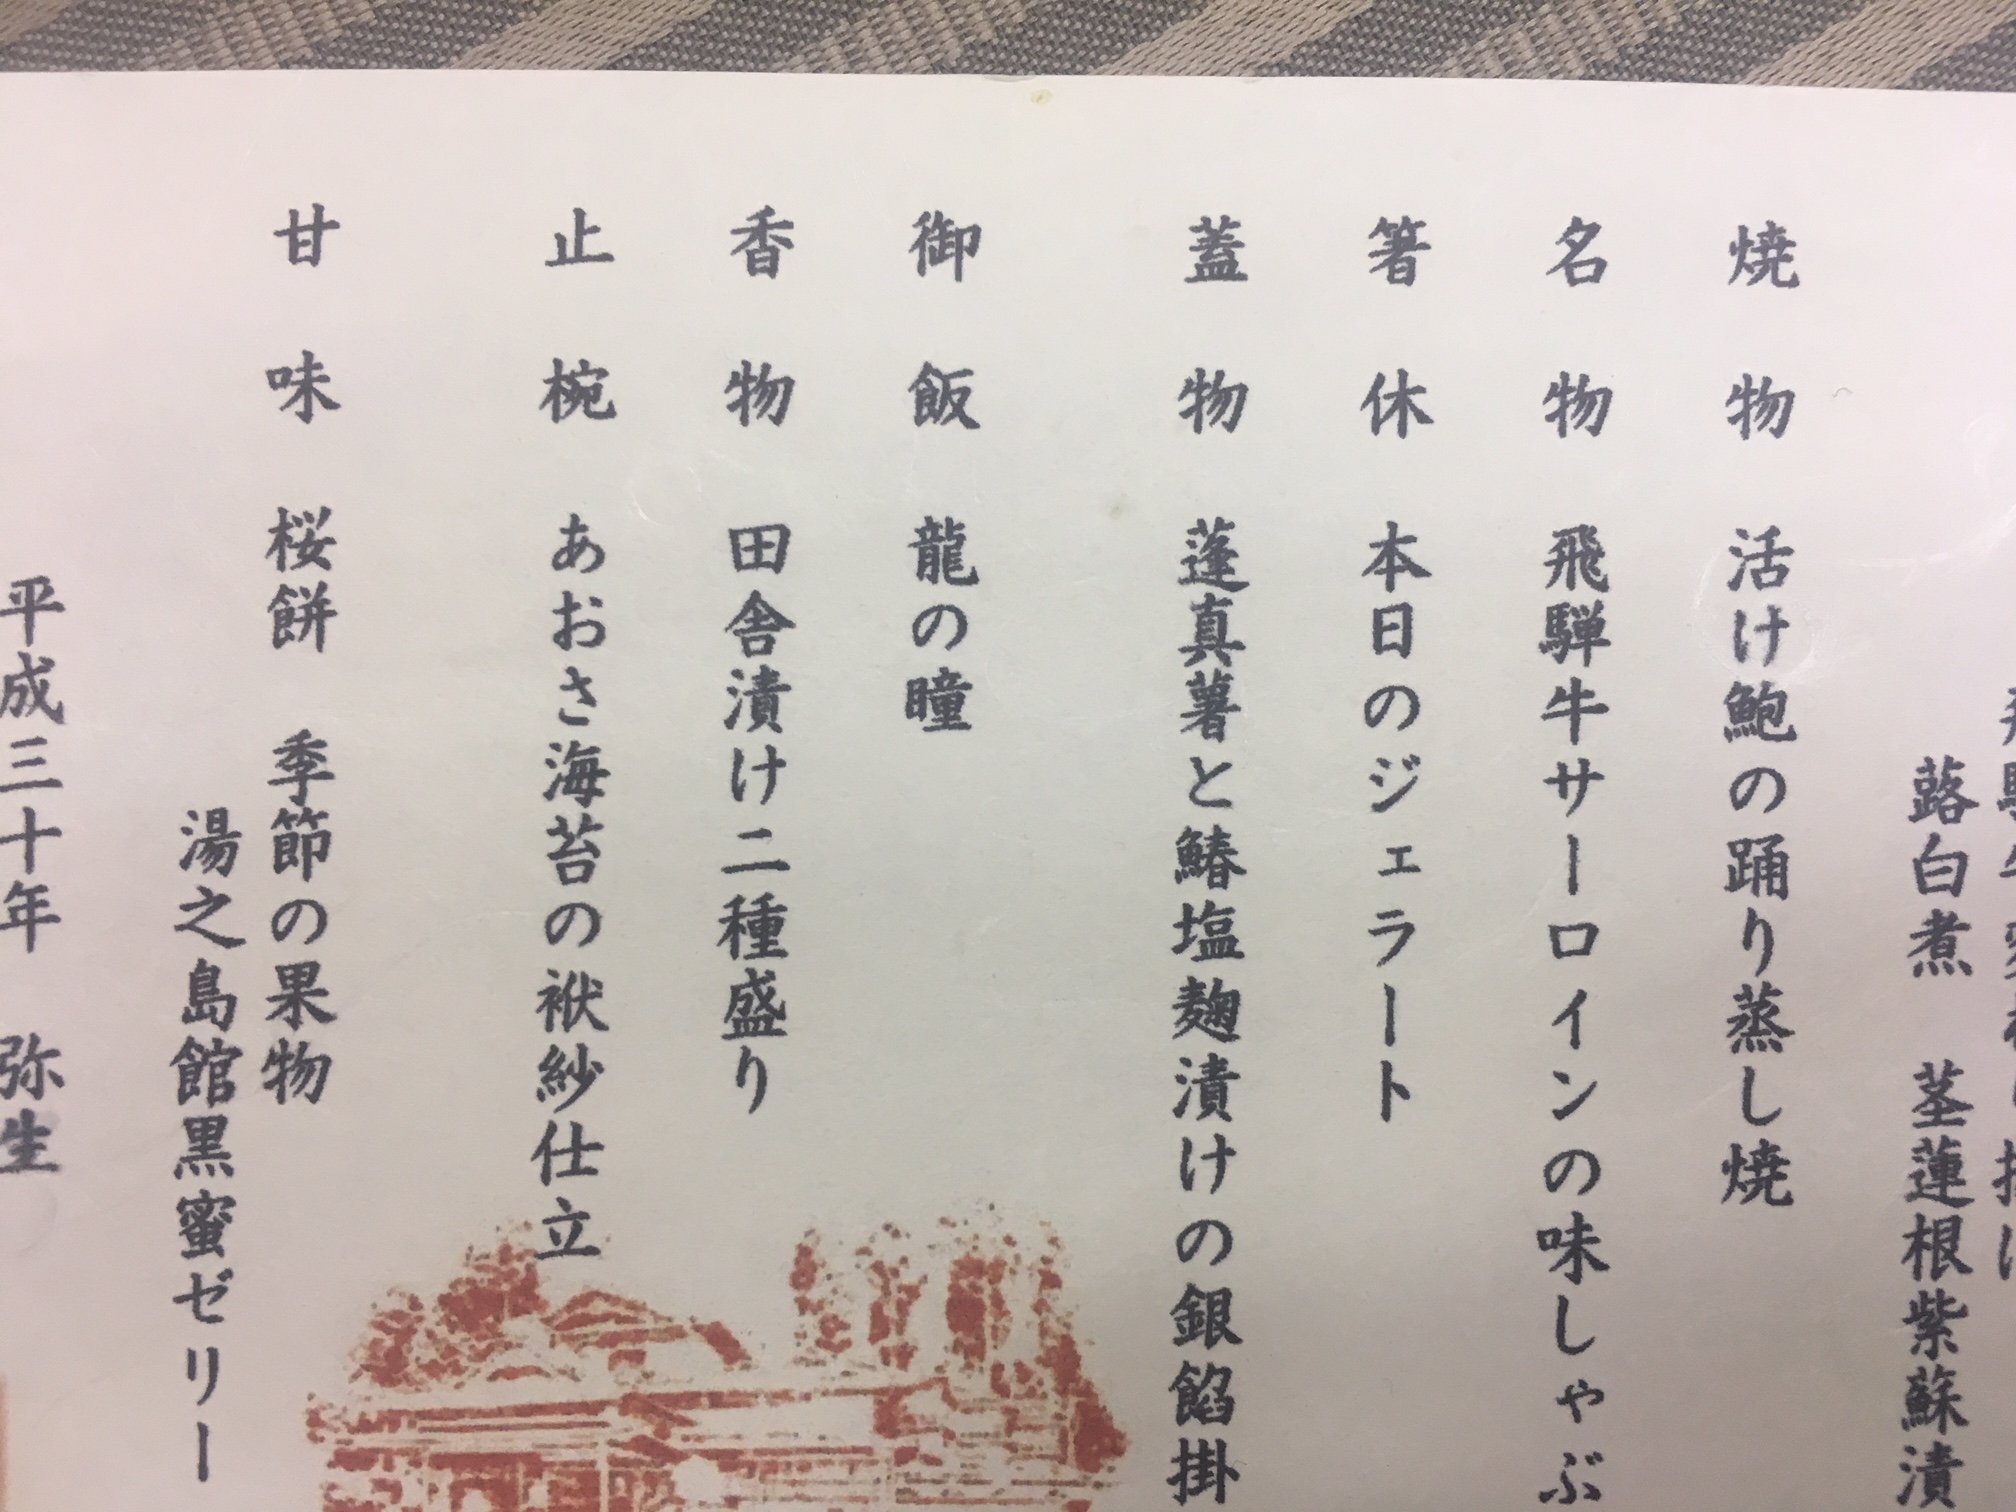 蕗白煮　茎蓮根紫蘇漬
焼物　活け鮑の踊り蒸し焼
名物　飛騨牛サーロインの味しゃぶ
箸休　本日のジェラート
蓋物　蓬真薯と鰆塩麹漬けの銀餡掛
御飯　龍の瞳
香物　田舎漬け二種盛り
止椀　あおさ海苔の袱紗仕立
甘味　桜餅　季節の果物
湯之島館黒蜜ゼリー
平成三十年　弥生